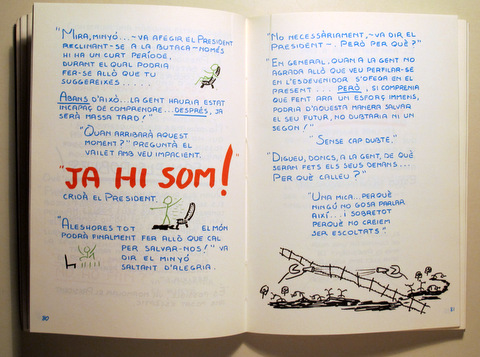 "Mira, minyó... – va afegir el President
reclinant-se a la butaca – només
hi ha un curt període,
durant el qual podria
fer-se allò que tu
suggereixes......
Abans d'això... la gent hauria estat
incapaç de comprendre... després, ja
serà massa tard!"
"Quan arribarà aquest
moment?" preguntà el
vailet amb veu impacient.
"JA HI SOM!"
cridà el President.
"Aleshores tot el món
podrà finalment fer allò que cal
per salvar-nos!" va
dir el minyó
saltant d'alegria.
80
"No necessàriament, – va dir el
President –. Però per què?"
"En general, quan a la gent no
agrada allò que veu perfilar-se
en l'esdevenidor s'ofega en el
present.... Però, si comprenia
que fent ara un esforç immens,
podria d'aquesta manera salvar
el seu futur, no dubtaria ni un
segon!"
"Sense cap dubte."
"Digueu, doncs, a la gent, de què
seran fets els seus demàns...
Per què calleu?"
"Una mica... perquè
ningú no gosa parlar
així... i sobretot
perquè no creiem
ser escoltats".